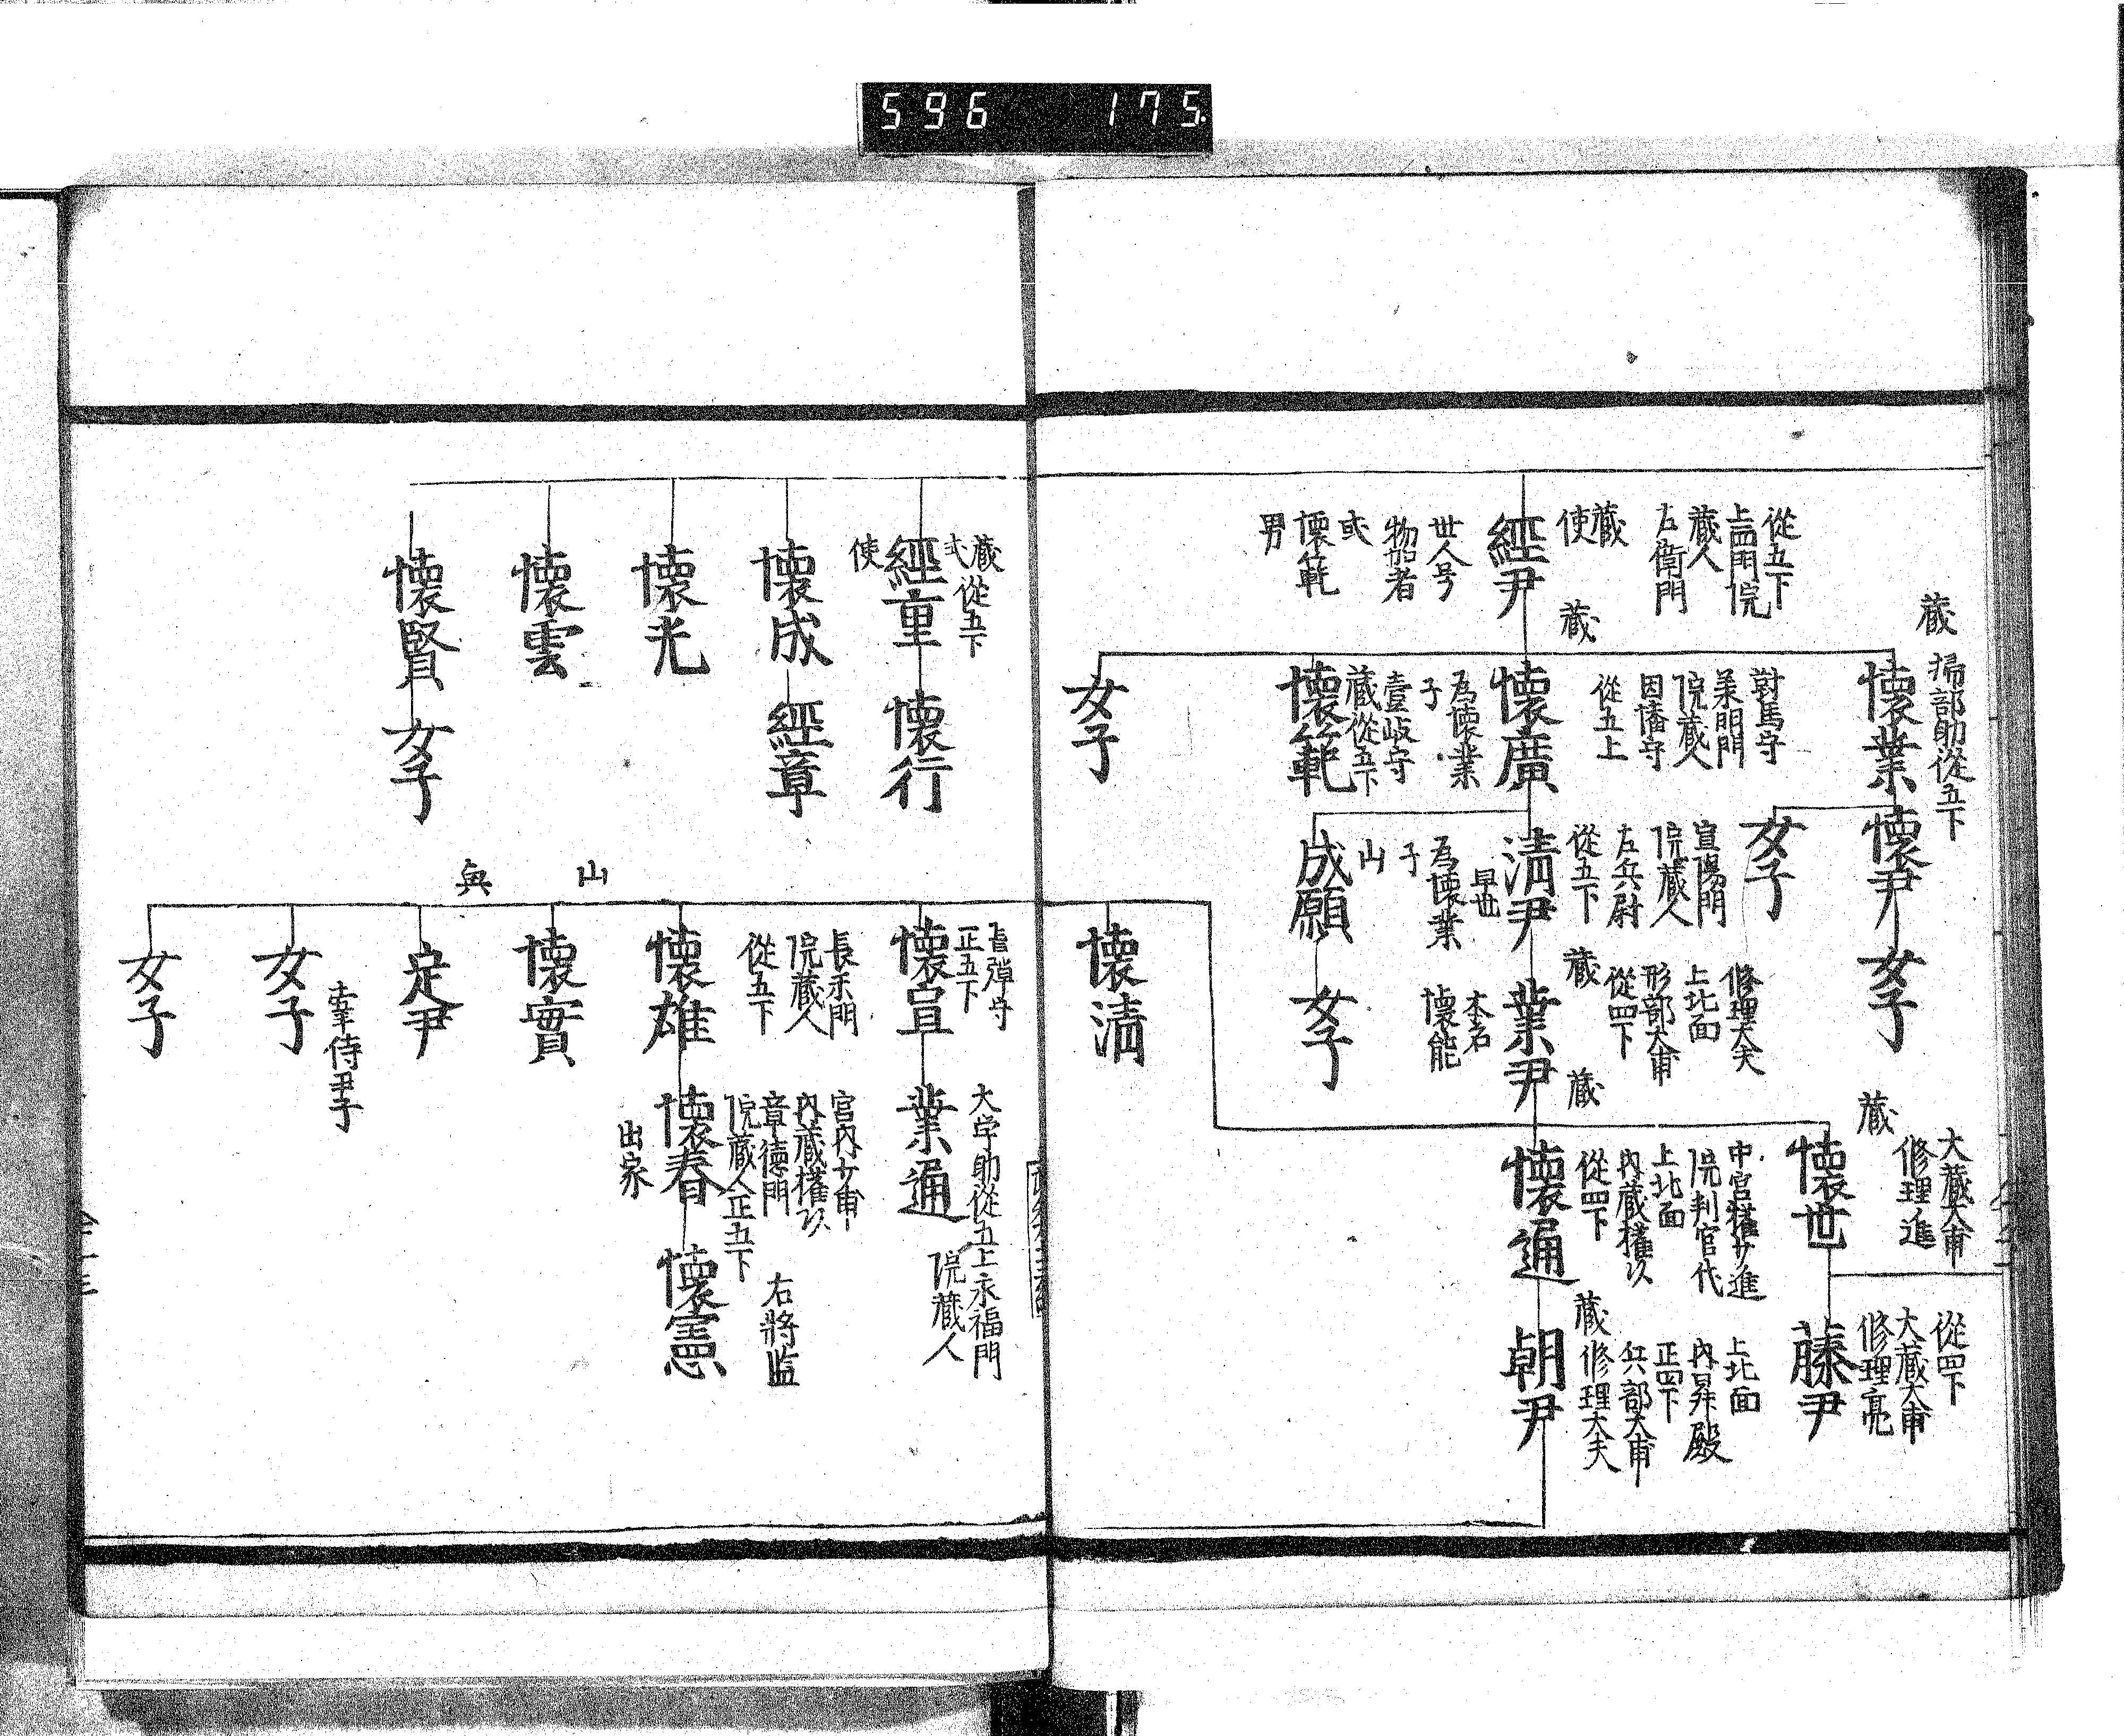 596 175
從五下
上西門院
蔵人
左衛門
蔵
使
經尹
世人号
物加者
或
懐範
男
蔵
掃部助從五下
懐業
懐尹
女子
女子
蔵
對馬守
美門門
院蔵人
因幡守
從五上
懐廣
為懐業
子
壹岐守
蔵從五下
懐範
女子
宣陽門
院蔵人
左兵尉
從五下
清尹
早世
為懐業
子
山
成願
女子
蔵
修理大夫
上北面
形部大甫
從四下
業尹
本名
懐能
蔵
大蔵大甫
修理進
懐世
從四下
大蔵大甫
修理亮
藤尹
蔵
中宮権少進
院判官代
上北面
内蔵権以
從四下
懐通
蔵
上北面
内昇殿
正四下
兵部大甫
修理大夫
朝尹
懐清
蔵從五下
式
經重
使
懐行
懐成
經章
懐光
懐雲
懐賢
女子
正五下
懐宣
大学助從五上永福門
院蔵人
業通
長禾門
院蔵人
從五下
懐雄
宮内少甫
内蔵権以
章德門
院蔵人正五下
懐春
出家
右將监
懐憲
山
懐實
無
定尹
侍尹子
女子
女子